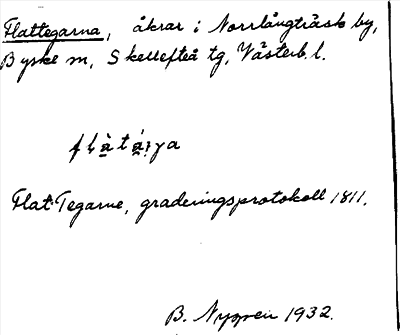 Flattegarna, åkrar i Norrlångträsk by,
Byske sn, Skellefteå tg, Västerb. l.
Flat-Tegarne, graderingsprotokoll 1811.
B. Nygren 1932.